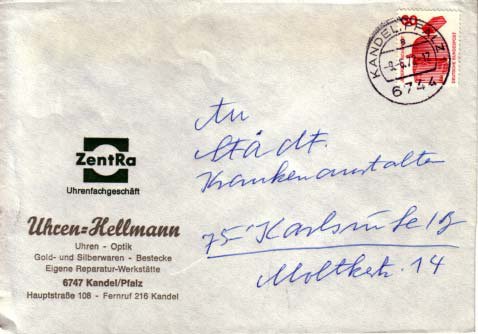 60
DEUTSCHE BUNDESPOST
KANDEL, PFALZ
a
6744
An
Städt.
Krankenanstalten
75 Karlsruhe
Moltkestr. 14
ZentRa
Uhrenfachgeschäft
Uhren=Hellmann
Uhren - Optik
Gold- und Silberwaren - Bestecke
Eigene Reparatur-Werkstätte
6747 Kandel/Pfalz
Hauptstraße 108 - Fernruf 216 Kandel